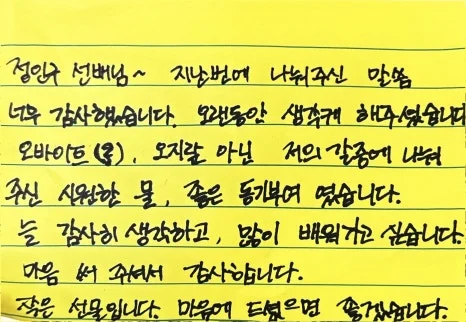 정인구 선배님~ 지난번에 나눠주신 말씀
너무 감사했습니다. 오랜동안 생각케 해주셨습니다
오바이트(욕), 오지랄 아닌 저의 갈증에 나눠
주신 시원한 물, 좋은 동기부여 였습니다.
늘 감사히 생각하고, 많이 배워가고 싶습니다.
마음 써 주셔서 감사합니다.
작은 선물입니다. 마음에 드셨으면 좋겠습니다.